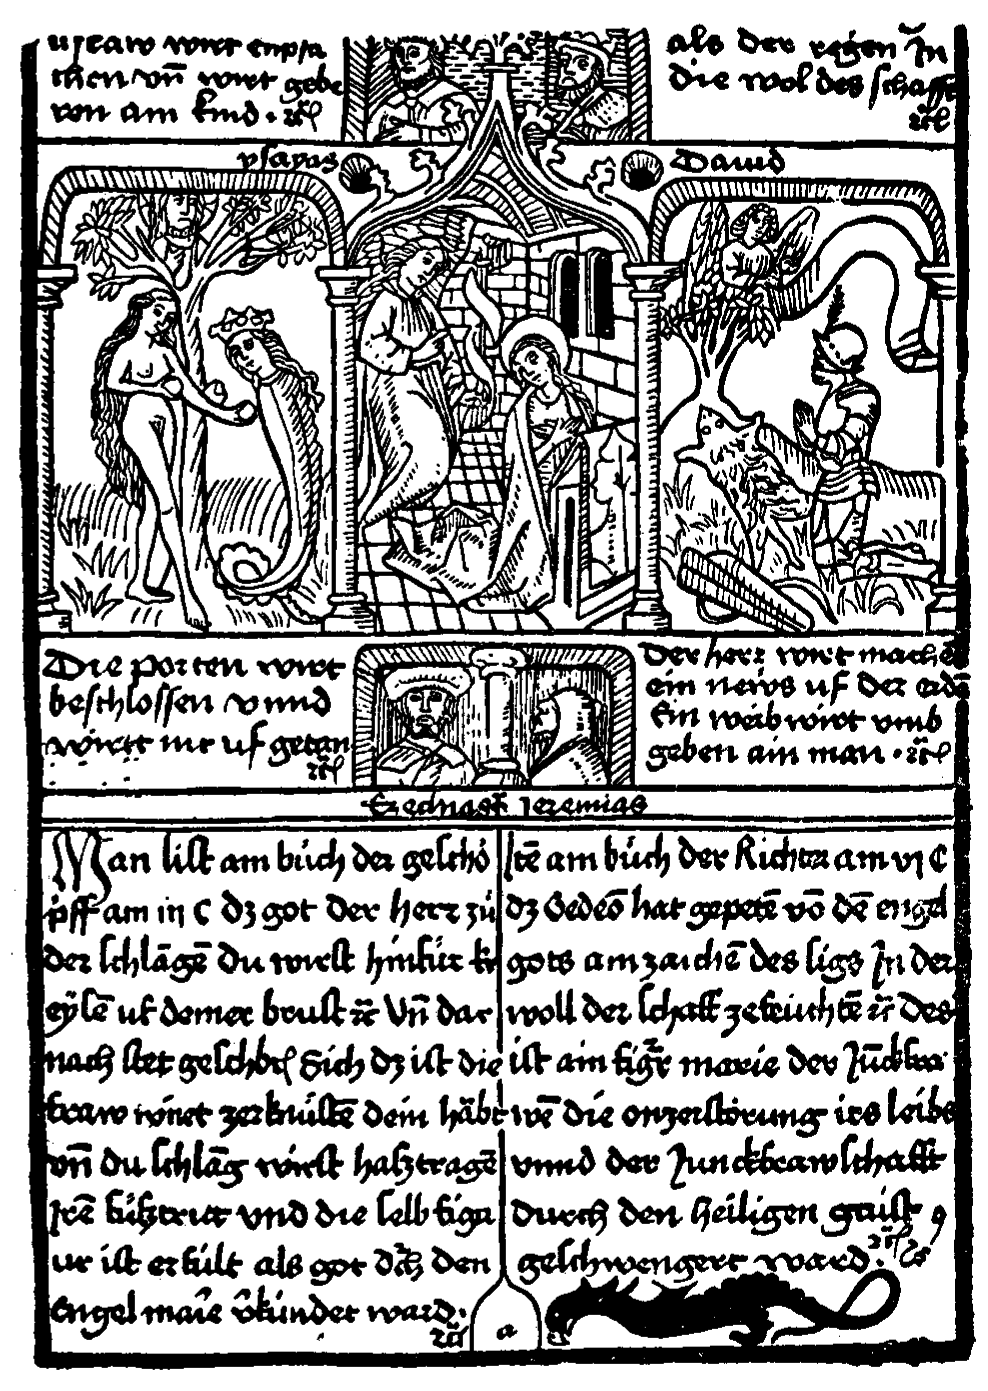 ufraw wirt enpfa
chen vn̄ wirt gebe
ren am kind . ꝛc̄
als der regen Jn
die wol des schaffs
ꝛc̄
ysayas
Dauid
Die porten wirt
beschlossen vnnd
wirtt nit uf getan
ꝛc̄
Der herr wirt machē
ein news uf der erdē
Ein weib wirt vmb
geben ain man . ꝛc̄
Jeremias
Man list am bu̇ch der geschö
pff am iij C dz got der herr zu̇
der schlāgē du wirst hinfür kr
eysē uf deiner brust ꝛc̄ Vn̄ dar
nach stet Sich dz ist die
fraw wirtet zerknüstē dein häbt
vn̄ du schlāg wirst haſztragē
Jrē fu̇sztritt vnd die selb figu
ur ist erfült als got den
Engel v̄kündet ward.
ꝛc̄
a
stē am bu̇ch der Richter am vj C
dz Gedeō hat gepetē vō dē engel
gots am zaichē des sigs Jn der
woll der schaff zefeüchtē ꝛc̄ Des
ist ain figr̄ marie der Ju̅ckfra
wē die onzerstörung irs leibs
vnnd der Junckfrawschafft
durch den heiligen gaist
geschwengert ward. ꝛc̄